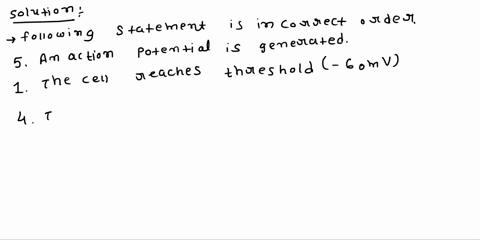 Solution:
→ following statement is in correct order.
5. An action potential is generated.
1. The cell reaches threshold (-60mV)
4. T